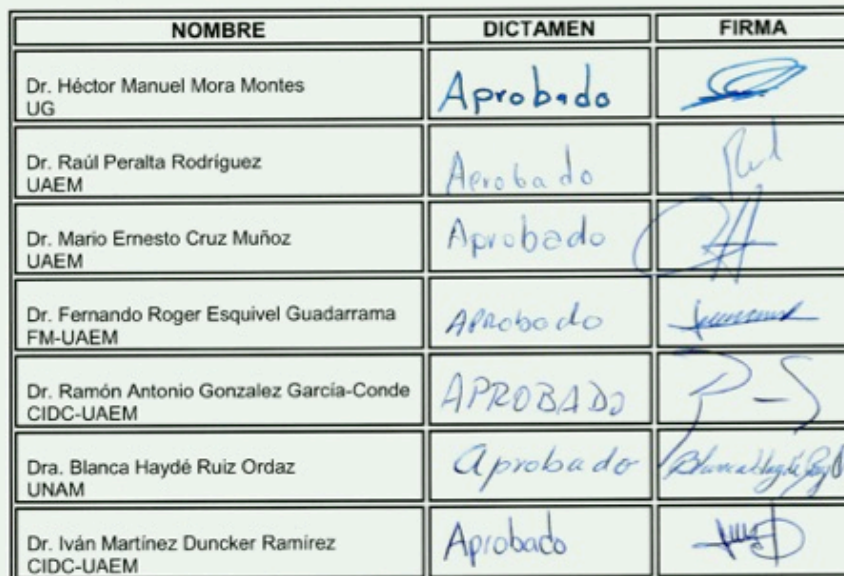 NOMBRE DICTAMEN FIRMA
Dr. Héctor Manuel Mora Montes
UG
Aprobado
Dr. Raúl Peralta Rodríguez
UAEM
Aprobado
Dr. Mario Ernesto Cruz Muñoz
UAEM
Aprobado
Dr. Fernando Roger Esquivel Guadarrama
FM-UAEM
Aprobado
Dr. Ramón Antonio Gonzalez García-Conde
CIDC-UAEM
APROBADO
Dra. Blanca Haydé Ruiz Ordaz
UNAM
Aprobado
Dr. Iván Martínez Duncker Ramírez
CIDC-UAEM
Aprobado